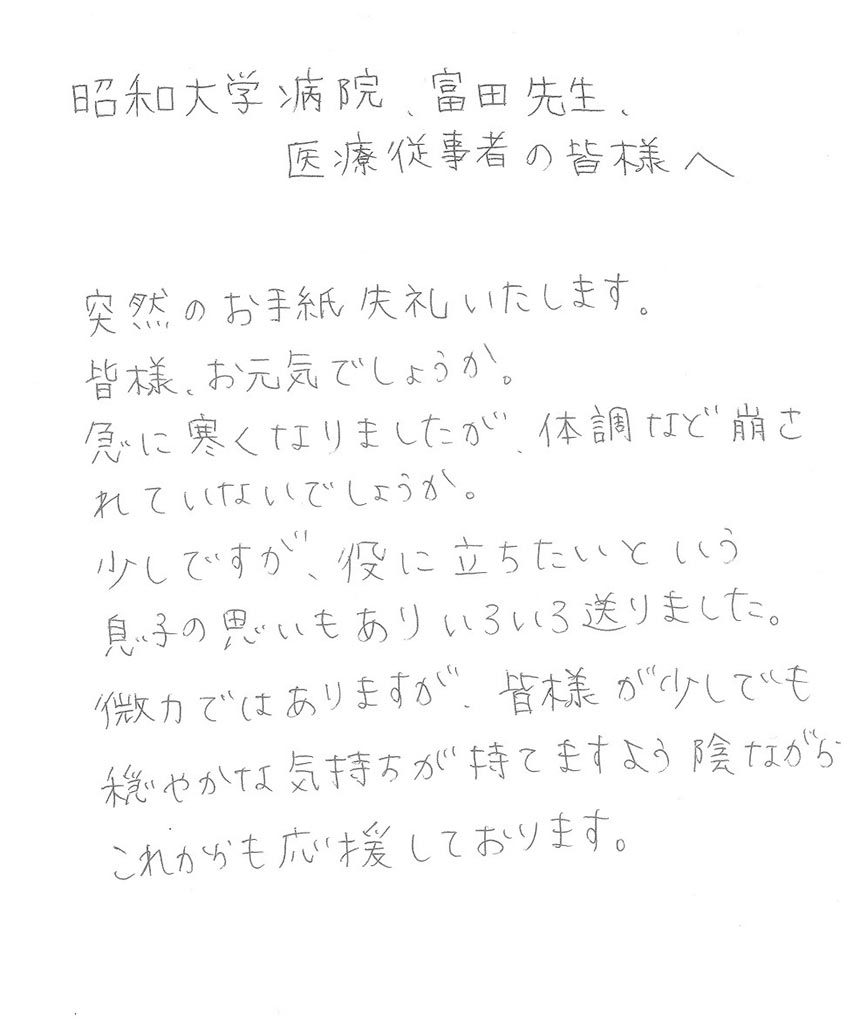 昭和大学病院、富田先生、
医療従事者の皆様へ
突然のお手紙失礼いたします。
皆様、お元気でしょうか。
急に寒くなりましたが、体調など崩さ
れていないでしょうか。
少しですが、役に立ちたいという
息子の思いもありいろいろ送りました。
微力ではありますが、皆様が少しでも
穏やかな気持ちが持てますよう陰ながら
これからも応援しております。